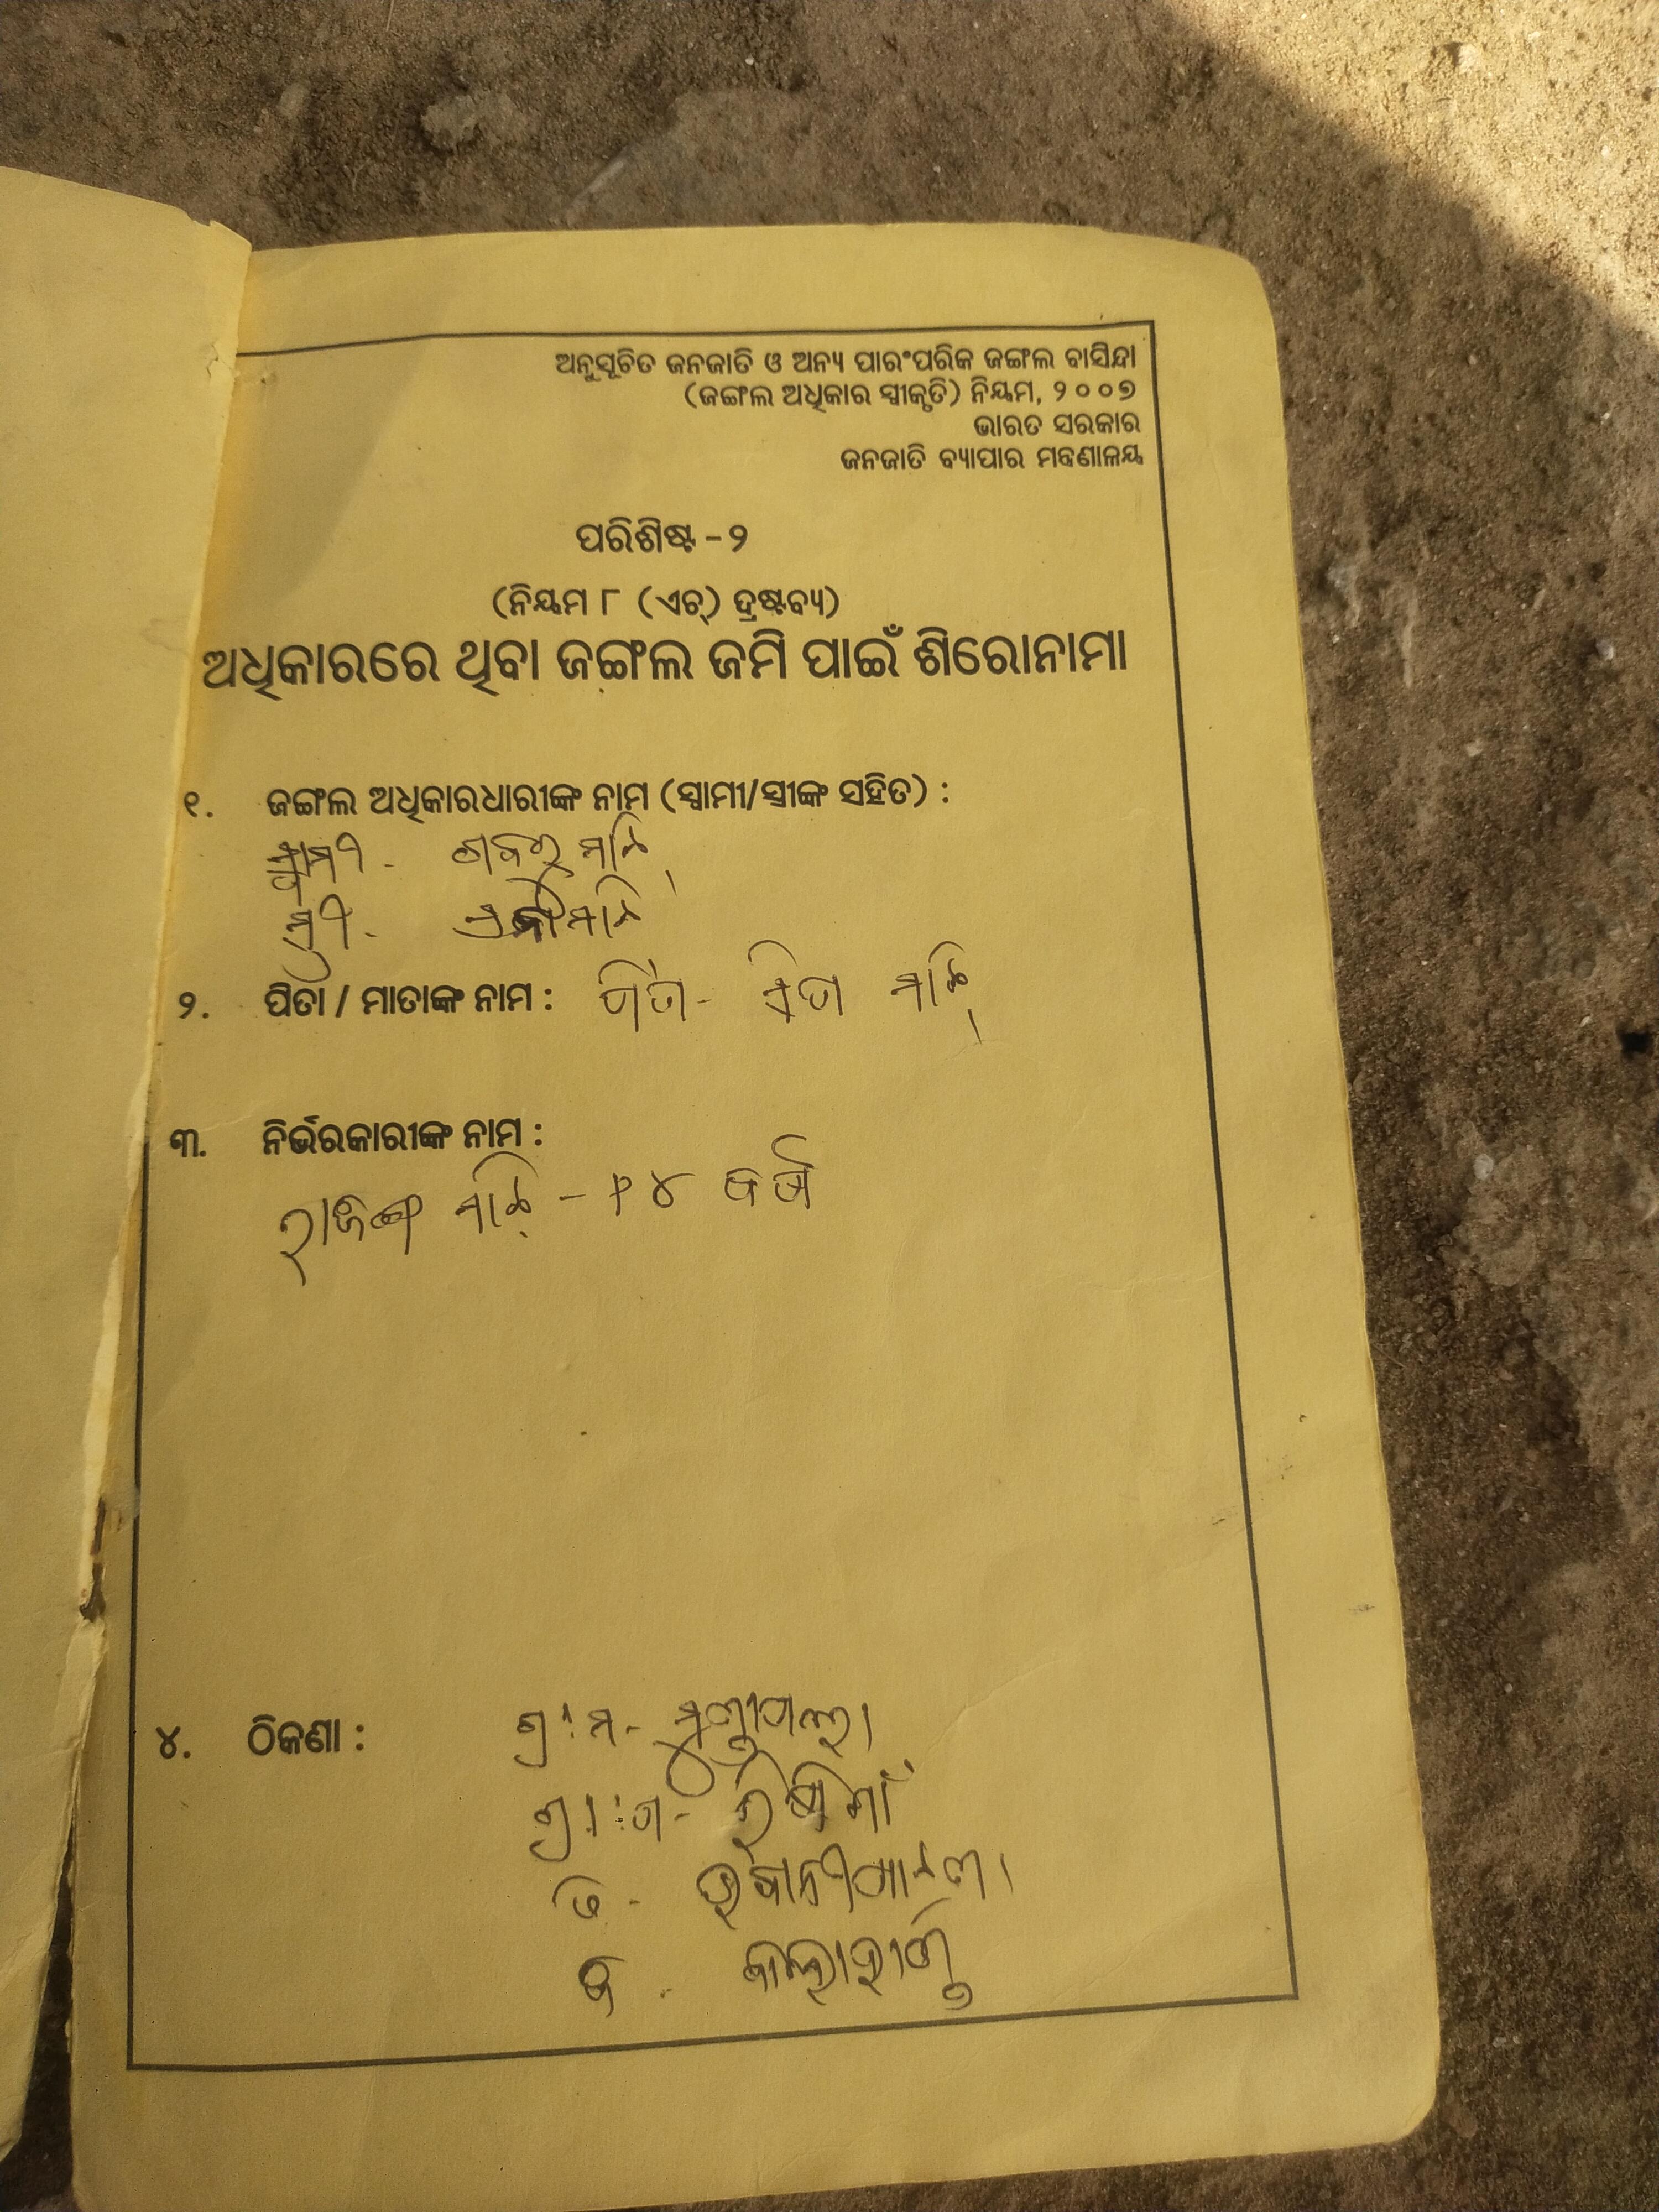 ଅନୁସୂଚିତ ଜନଜାତି ଓ ଅନ୍ୟ ପାରଂପରିକ ଜଙ୍ଗଲ ବାସିନ୍ଦା
(ଜଙ୍ଗଲ ଅଧିକାର ସ୍ୱୀକୃତି) ନିୟମ, ୨୦୦୭
ଭାରତ ସରକାର
ଜନଜାତି ବ୍ୟାପାର ମନ୍ତ୍ରଣାଳୟ
ପରିଶିଷ୍ଟ - ୨
(ନିୟମ ୮ (ଏଚ୍) ଦ୍ରଷ୍ଟବ୍ୟ)
ଅଧିକାରରେ ଥିବା ଜଙ୍ଗଲ ଜମି ପାଇଁ ଶିରୋନାମା
୧. ଜଙ୍ଗଲ ଅଧିକାରଧାରୀଙ୍କ ନାମ (ସ୍ୱାମୀ/ସ୍ତ୍ରୀଙ୍କ ସହିତ) :
ସ୍ୱାମୀ - ମାଝି
ସ୍ତ୍ରୀ - ମାଝି
୨. ପିତା / ମାତାଙ୍କ ନାମ : ପିତା - ମାଝି
୩. ନିର୍ଭରକାରୀଙ୍କ ନାମ :
ମାଝି - ୧୪ ବର୍ଷ
୪. ଠିକଣା : ଗ୍ରାମ -
ଗ୍ରା.ପ -
ଜି . କଳାହାଣ୍ଡି